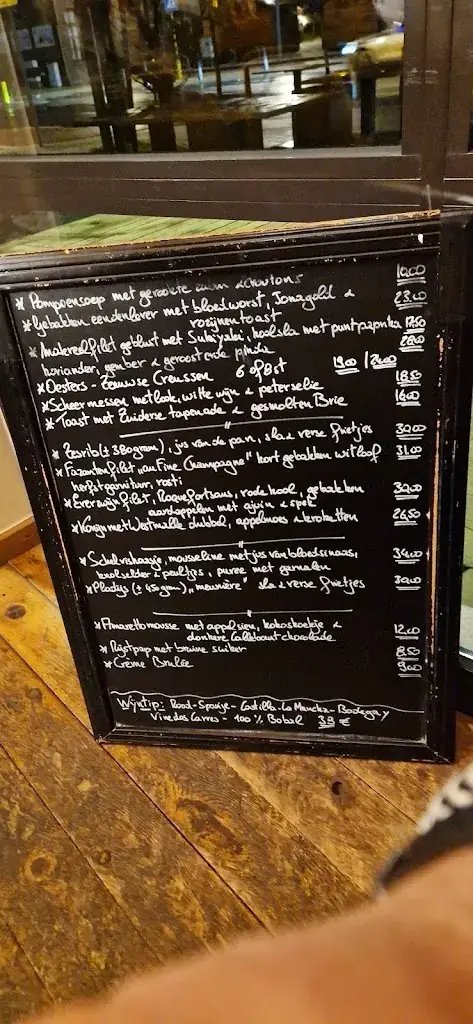 * Pompoensoep met gerookte zalm & croutons 10.00
* Gebakken eendenlever met bloedworst, Jonagold & 23.00
rozijnentoast
* Makreelfilet geblust met Sukiyaki, koolsla met puntpaprika 17.50
koriander, gember & geroosterde
* Oesters - Zeeuwse Creusen 6 of 8st 19.00 | 24.00
* Scheermessen met look, witte wijn & peterselie 18.50
* Toast met Zuiderse tapenade & gesmolten Brie 16.00
* Zesrib (± 380gram), jus van de pan, sla & verse frietjes 39.00
* Fazantenfilet "au Fine Champagne" kort gebakken witloof 31.00
herfstgarnituur, rösti
* Everzwijnfilet, Roquefortsaus, rode kool, gebakken 32.00
aardappelen met ajuin & spek
* Konijn met Westmalle dubbel, appelmoes & kroketten 26.50
* Schelvishaasje, mousseline met jus van bloedsinaas, 34.00
& peultjes, puree met garnalen
* Pladijs (± 450gram) "meunière" sla & verse frietjes 30.00
* Amarettomousse met appelsien, kokoskoekje & 12.00
donkere Callebaut chocolade
* Rijstpap met bruine suiker 8.50
* Crème Brulée 9.00
Wijntip: Rood - Spanje - Castilla - La Mancha - Bodega y
Vinedos Carres - 100% Bobal 38 €